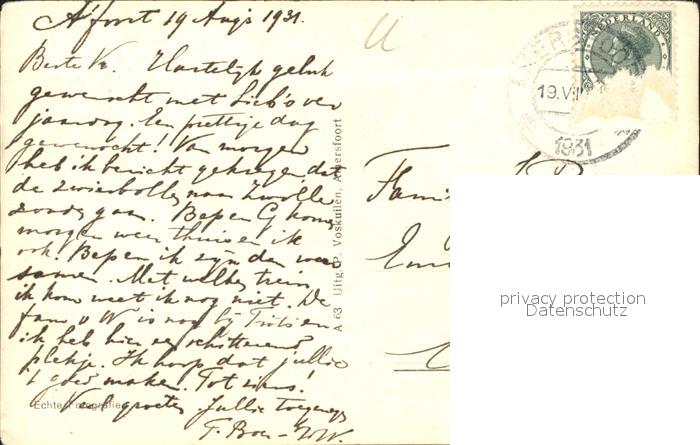 A'foort 19 Aug's 1931.
Beste Hartelijk geluk
gewenscht met Lieb's ver
jaardag. Een prettige dag
gewenscht! Van morgen
heb ik bericht gekregen dat
de naar Zwolle
gaan. Bep en G komen
morgen weer thuis en ik
ook. Bep en ik zijn dan weer
samen. Met welke trein
ik kom weet ik nog niet. De
fam v W is nog bij en
ik heb hier een schitterend
plekje. Ik hoop dat jullie
't goed maken. Tot ziens!
Veel groeten jullie toegenegen
F.
Echte Fotografie
A 63 Uitg. P. Voskuilen, Amersfoort
NEDERLAND
AMERSFOORT
19.VIII
1931
Fami
privacy protection
Datenschutz